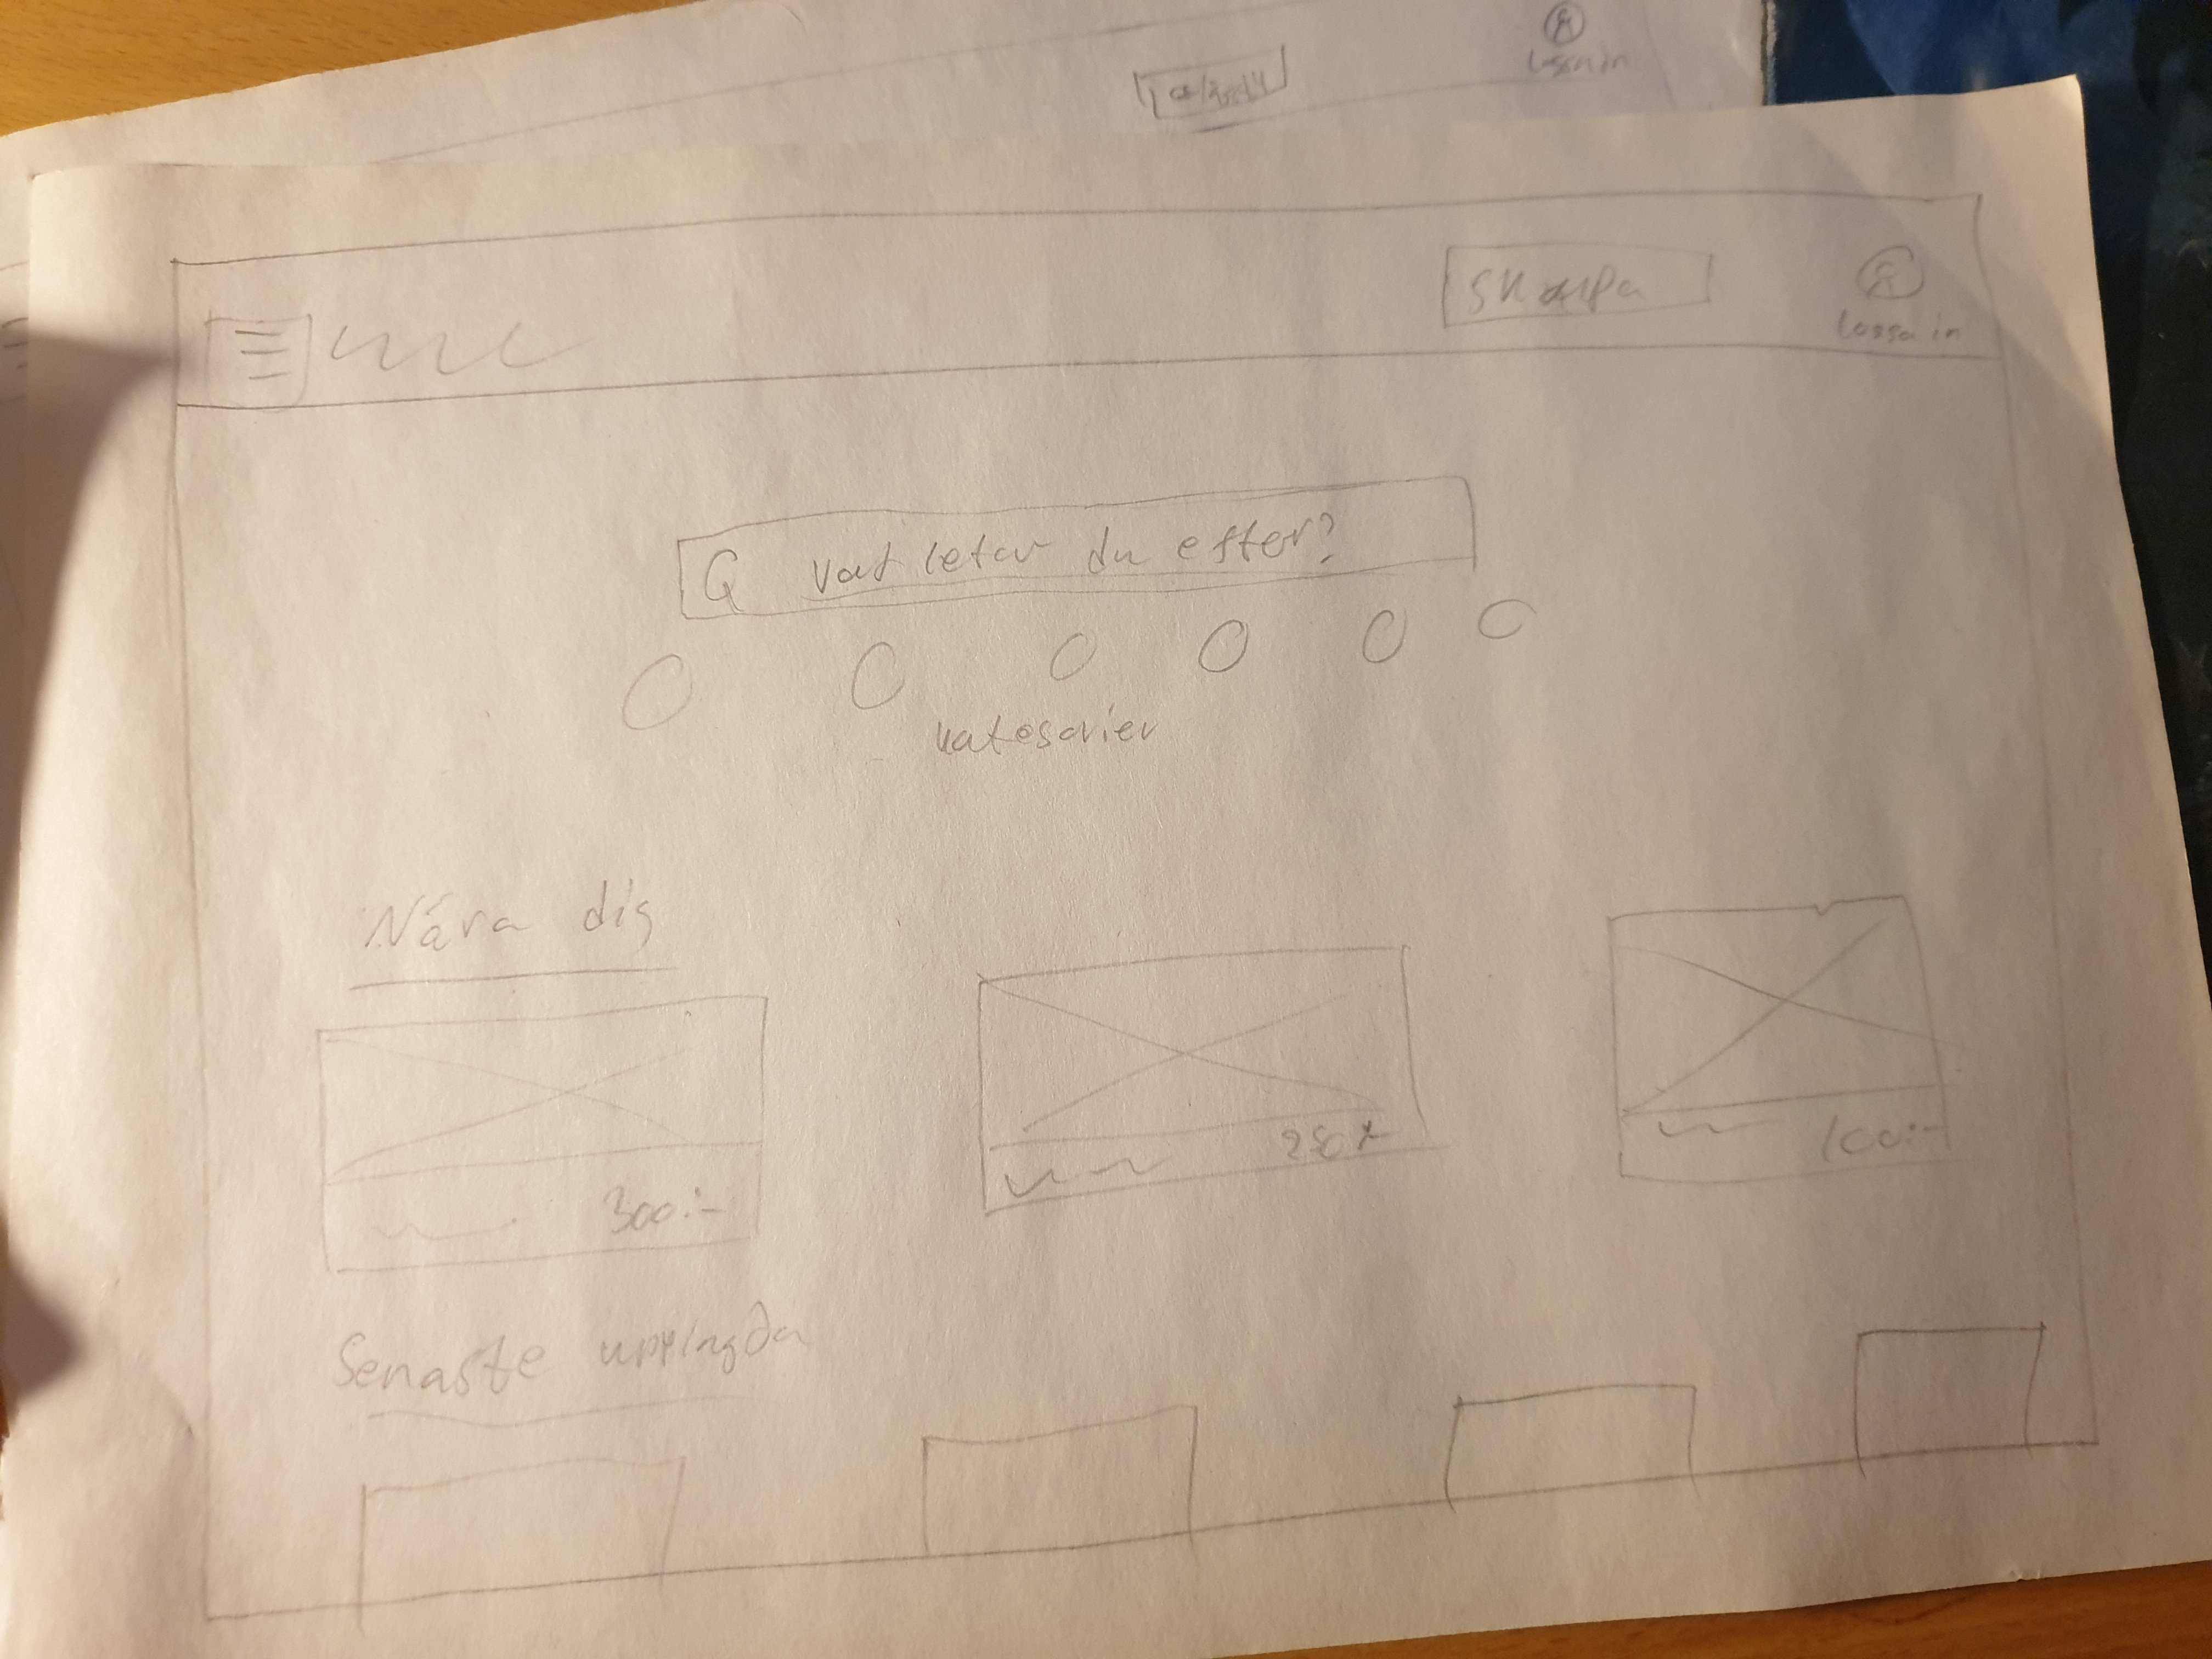 Logga in
Skapa
Logga in
Vad letar du efter?
kategorier
Nära dig
300:-
250:-
100:-
Senaste upplagda